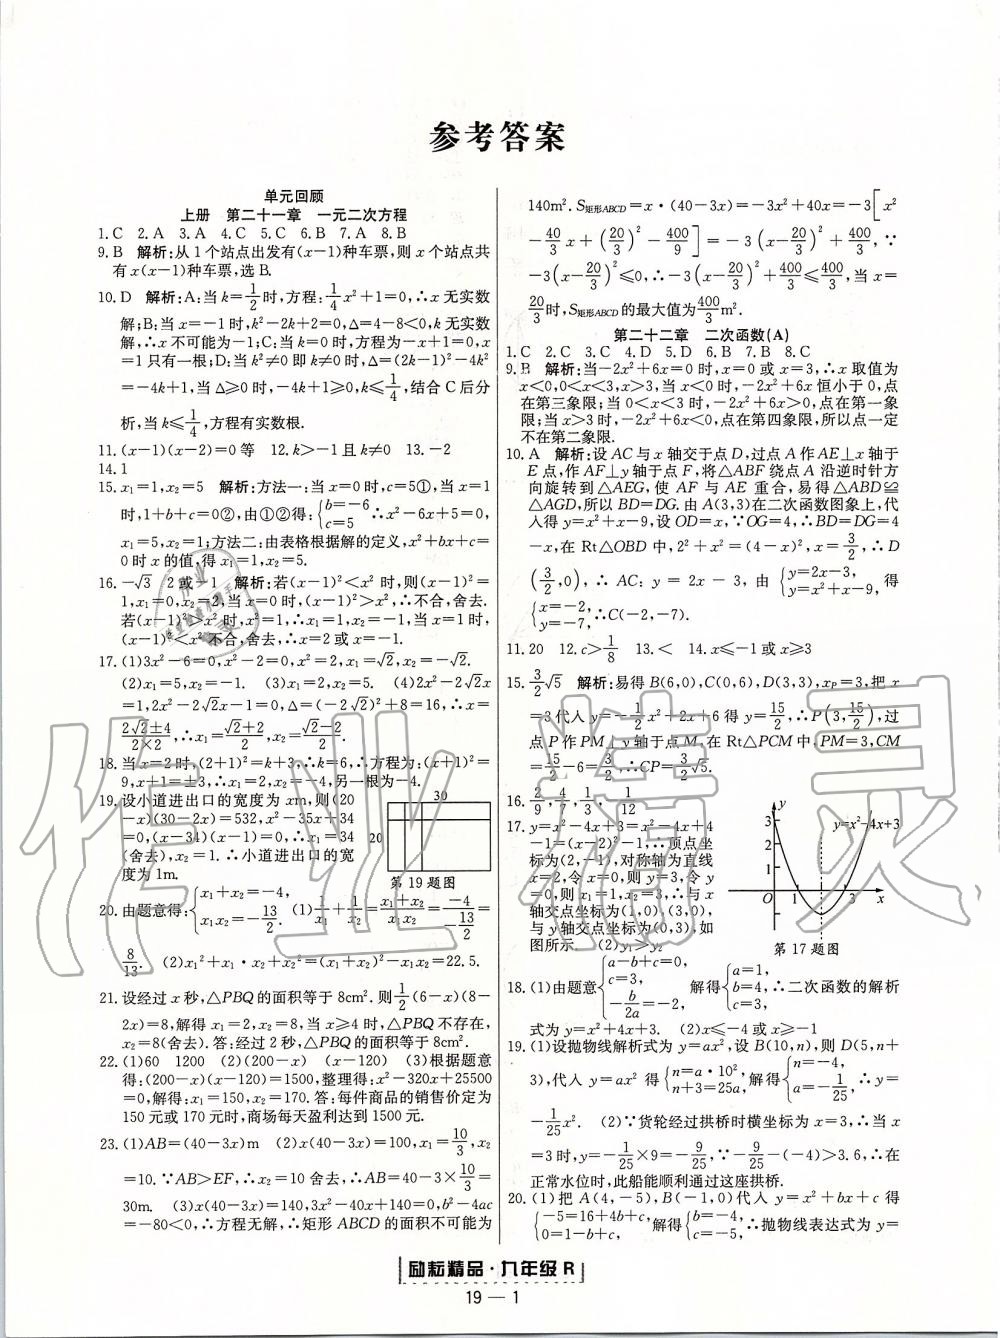 参考答案
单元回顾
上册 第二十一章 一元二次方程
1.C 2.A 3.A 4.C 5.C 6.B 7.A 8.B
9.B 解析:从1个站点出发有(x-1)种车票,则x个站点共
有x(x-1)种车票,选B.
10.D 解析:A:当k=1/2时,方程:1/4x²+1=0,∴x无实数
解;B:当x=-1时,k²-2k+2=0,Δ=4-8<0,k无实数
解,∴x不可能为-1;C:当k=0时,方程为-x+1=0,x
=1只有一根;D:当k≠0即k≠0时,Δ=(2k-1)²-4k²
=-4k+1,当Δ≥0时,-4k+1≥0,k≤1/4,结合C后分
析,当k≤1/4,方程有实数根.
11.(x-1)(x-2)=0等 12.k>-1且k≠0 13.-2
14.1
15.x₁=1,x₂=5 解析:方法一:当x=0时,c=5①,当x=1
时,1+b+c=0②,由①②得:{b=-6 c=5∴x²-6x+5=0,
x₁=5,x₂=1;方法二:由表格根据解的定义,x²+bx+c=
0时x的值,得x₁=1,x₂=5.
16.-√3 2或-1 解析:若(x-1)²<x²时,则(x-1)²=
1,x₁=0,x₂=2,当x=0时,(x-1)²>x²,∴不合,舍去.
若(x-1)²>x²时,x²=1,∴x₁=1,x₂=-1,当x=1时,
(x-1)²<x²不合,舍去,∴x=2或x=-1.
17.(1)3x²-6=0,x²-2=0,x²=2,x₁=√2,x₂=-√2.
(2)x₁=5,x₂=-1. (3)x₁=-1,x₂=5. (4)2x²-2√2x
=1,2x²-2√2x-1=0,Δ=(-2√2)²+8=16,∴x=
(2√2±4)/(2×2),∴x₁=(√2+2)/2,x₂=(√2-2)/2.
18.当x=2时,(2+1)²=k+3,∴k=6,∴方程为:(x+1)²=
9,x+1=±3,∴x₁=2,x₂=-4,另一根为-4.
19.设小道进出口的宽度为xm,则(20
-x)(30-2x)=532,x²-35x+34
=0,(x-34)(x-1)=0,∴x₁=34
(舍去),x₂=1.∴小道进出口的宽
度为1m.
30
20
第19题图
20.由题意得:{x₁+x₂=-4, x₁x₂=-13/2. (1)1/x₁+1/x₂=(x₁+x₂)/(x₁x₂)=-4/(-13/2)=
8/13. (2)x₁²+x₁·x₂+x₂²=(x₁+x₂)²-x₁x₂=22.5.
21.设经过x秒,△PBQ的面积等于8cm².则1/2(6-x)(8-
2x)=8,解得x₁=2,x₂=8,当x≥4时,△PBQ不存在,
x₂=8(舍去).答:经过2秒,△PBQ的面积等于8cm².
22.(1)60 1200 (2)(200-x) (x-120) (3)根据题意
得:(200-x)(x-120)=1500,整理得:x²-320x+25500
=0,解得:x₁=150,x₂=170.答:每件商品的销售价定为
150元或170元时,商场每天盈利达到1500元.
23.(1)AB=(40-3x)m (2)x(40-3x)=100,x₁=10/3,x₂
=10.∵AB>EF,∴x₂=10舍去,∴AB=40-3×10/3=
30m. (3)x(40-3x)=140,3x²-40x+140=0,b²-4ac
=-80<0,∴方程无解,∴矩形ABCD的面积不可能为
140m².S矩形ABCD=x·(40-3x)=-3x²+40x=-3[x²
-40/3x+(20/3)²-400/9]=-3(x-20/3)²+400/3,∵
-3(x-20/3)²≤0,∴-3(x-20/3)²+400/3≤400/3,当x=
20/3时,S矩形ABCD的最大值为400/3m².
第二十二章 二次函数(A)
1.C 2.C 3.C 4.D 5.D 6.B 7.B 8.C
9.B 解析:当-2x²+6x=0时,x=0或x=3,∴x取值为
x<0,0<x<3,x>3;当x<0时,-2x²+6x恒小于0,点
在第三象限;当0<x<3时,-2x²+6x>0,点在第一象
限;当x>3时,-2x²+6x<0,点在第四象限,所以点一定
不在第二象限.
10.A 解析:设AC与x轴交于点D,过点A作AE⊥x轴于
E点,作AF⊥y轴于点F,将△ABF绕点A沿逆时针方
向旋转到△AEG,使AF与AE重合,易得△ABD≌
△AGD,所以BD=DG.由A(3,3)在二次函数图象上,代
入得y=x²+x-9,设OD=x,∵OG=4,∴BD=DG=4
-x,在Rt△OBD中,2²+x²=(4-x)²,x=3/2,∴D
(3/2,0),∴AC:y=2x-3,由{y=2x-3, y=x²+x-9,得
{x=-2, y=-7,∴C(-2,-7).
11.20 12.c>1/8 13.< 14.x≤-1或x≥3
15.3/2√5 解析:易得B(6,0),C(0,6),D(3,3),xP=3,把x
=3代入y=-1/2x²+2x+6得y=15/2,∴P(3,15/2),过
点P作PM⊥y轴于点M,在Rt△PCM中,PM=3,CM
=15/2-6=3/2,∴CP=3/2√5.
16.2/9,4/7,1/3,1/12
17.y=x²-4x+3=x²-4x+4
-1=(x-2)²-1,∴顶点坐
标为(2,-1),对称轴为直线
x=2,令x=0,则y=3,令y
=0,则x₁=1,x₂=3,∴与x
轴交点坐标为(1,0),(3,0),
与y轴交点坐标为(0,3),如
图所示. (2)y₁>y₂
y
3
2
1
O 1 3 x
y=x²-4x+3
第17题图
18.(1)由题意{a-b+c=0, c=3, -b/2a=-2,解得{a=1, b=4, c=3,∴二次函数的解析
式为y=x²+4x+3. (2)x≤-4或x≥-1
19.(1)设抛物线解析式为y=ax²,设B(10,n),则D(5,n+
3),代入y=ax²得{n=a·10², n+3=25a,解得{n=-4, a=-1/25,∴y=
-1/25x². (2)∵货轮经过拱桥时横坐标为x=3,∴当x
=3时,y=-1/25×9=-9/25,∵-9/25-(-4)>3.6,∴在
正常水位时,此船能顺利通过这座拱桥.
20.(1)把A(4,-5),B(-1,0)代入y=x²+bx+c得
{-5=16+4b+c, 0=1-b+c,解得{b=-4, c=-5,∴抛物线表达式为y=
励耘精品·九年级R
19—1
作业精灵